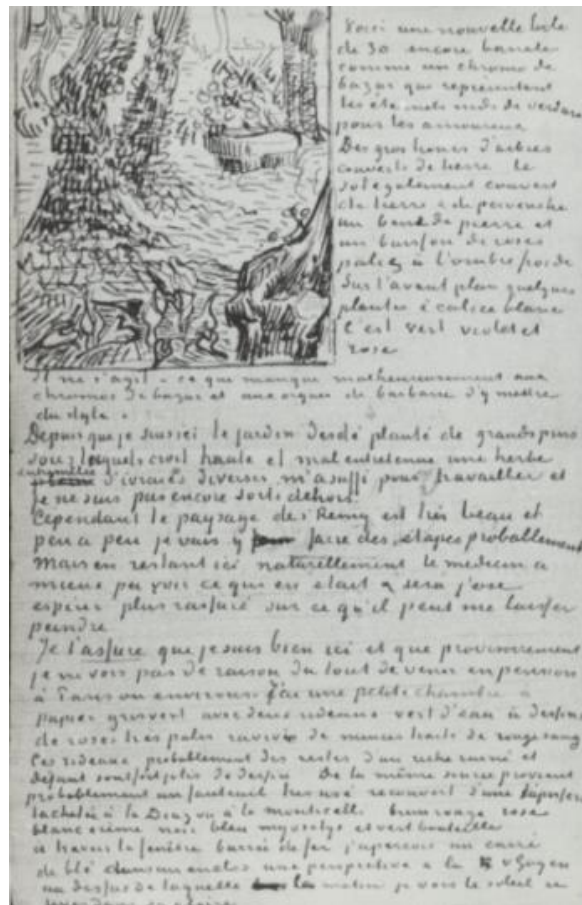 Voici une nouvelle toile
de 30 encore banale
comme un chromo de
bazar qui représente
les éternels nids de verdure
pour les amoureux
Des gros troncs d'arbres
couverts de lierre le
sol également couvert
de lierre & de pervenche
un banc de pierre et
un buisson de roses
pales à l'ombre froide
Sur l'avant plan quelques
plantes à calice blanc
C'est vert violet et
rose
Il ne s'agit - ce que manque malheureusement aux
chromos de bazar et aux orgues de barbarie d'y mettre
du style.
Depuis que je suis ici le jardin désolé planté de grands pins
sous lesquels croit haute et mal entretenue une herbe
entremêlée d'ivraies diverses m'a suffi pour travailler et
je ne suis pas encore sorti dehors.
Cependant le paysage de St Remy est très beau et
peu a peu je vais y faire des étapes probablement
Mais en restant ici naturellement le medecin a
mieux pu voir ce qui en etait & sera j'ose
espérer plus rassuré sur ce qu'il peut me laisser
peindre
Je t'assure que je suis bien ici et que provisoirement
je ne vois pas de raison du tout de venir en pension
à Paris ou environs. J'ai une petite chambre à
papier gris vert avec deux rideaux vert d'eau à dessins
de roses très pales ravivés de minces traits de rouge sang
Ces rideaux probablement des restes d'un riche ruiné et
défunt sont fort jolis de dessin. De la même source provient
probablement un fauteuil très usé recouvert d'une tapisserie
tachetée à la Diaz ou à la monticelli brun rouge rose
blanc crème noir bleu myosotys et vert bouteille
à travers la fenêtre barrée de fer j'aperçois un carré
de blé dans un enclos une perspective a la v Goyen
au dessus de laquelle le matin je vois le soleil se